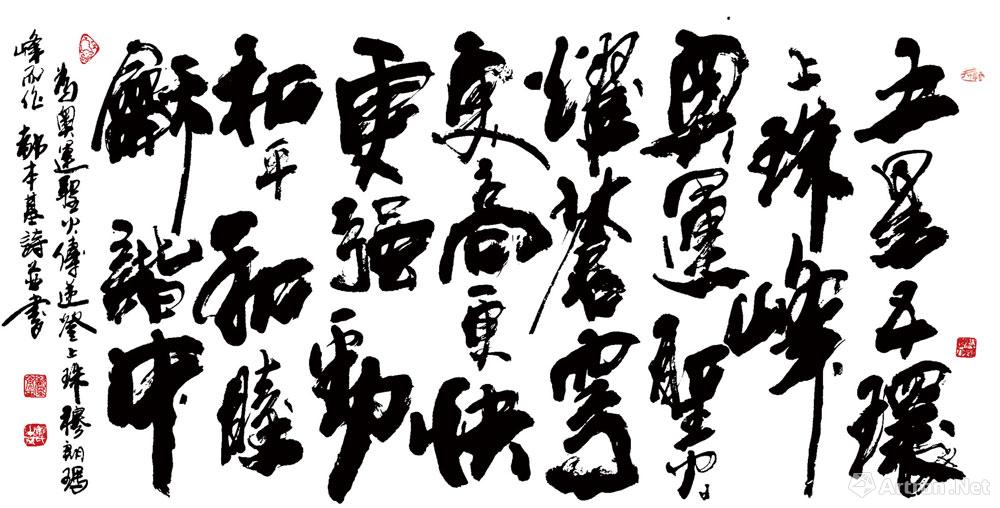 五星五環
上珠峰
奥運聖火
耀蒼穹
更高更快
更强動
和平和睦
龢諧中
為奥運聖火傳遞登上珠穆朗瑪
峰而作 都本基詩並書
Artron.Net